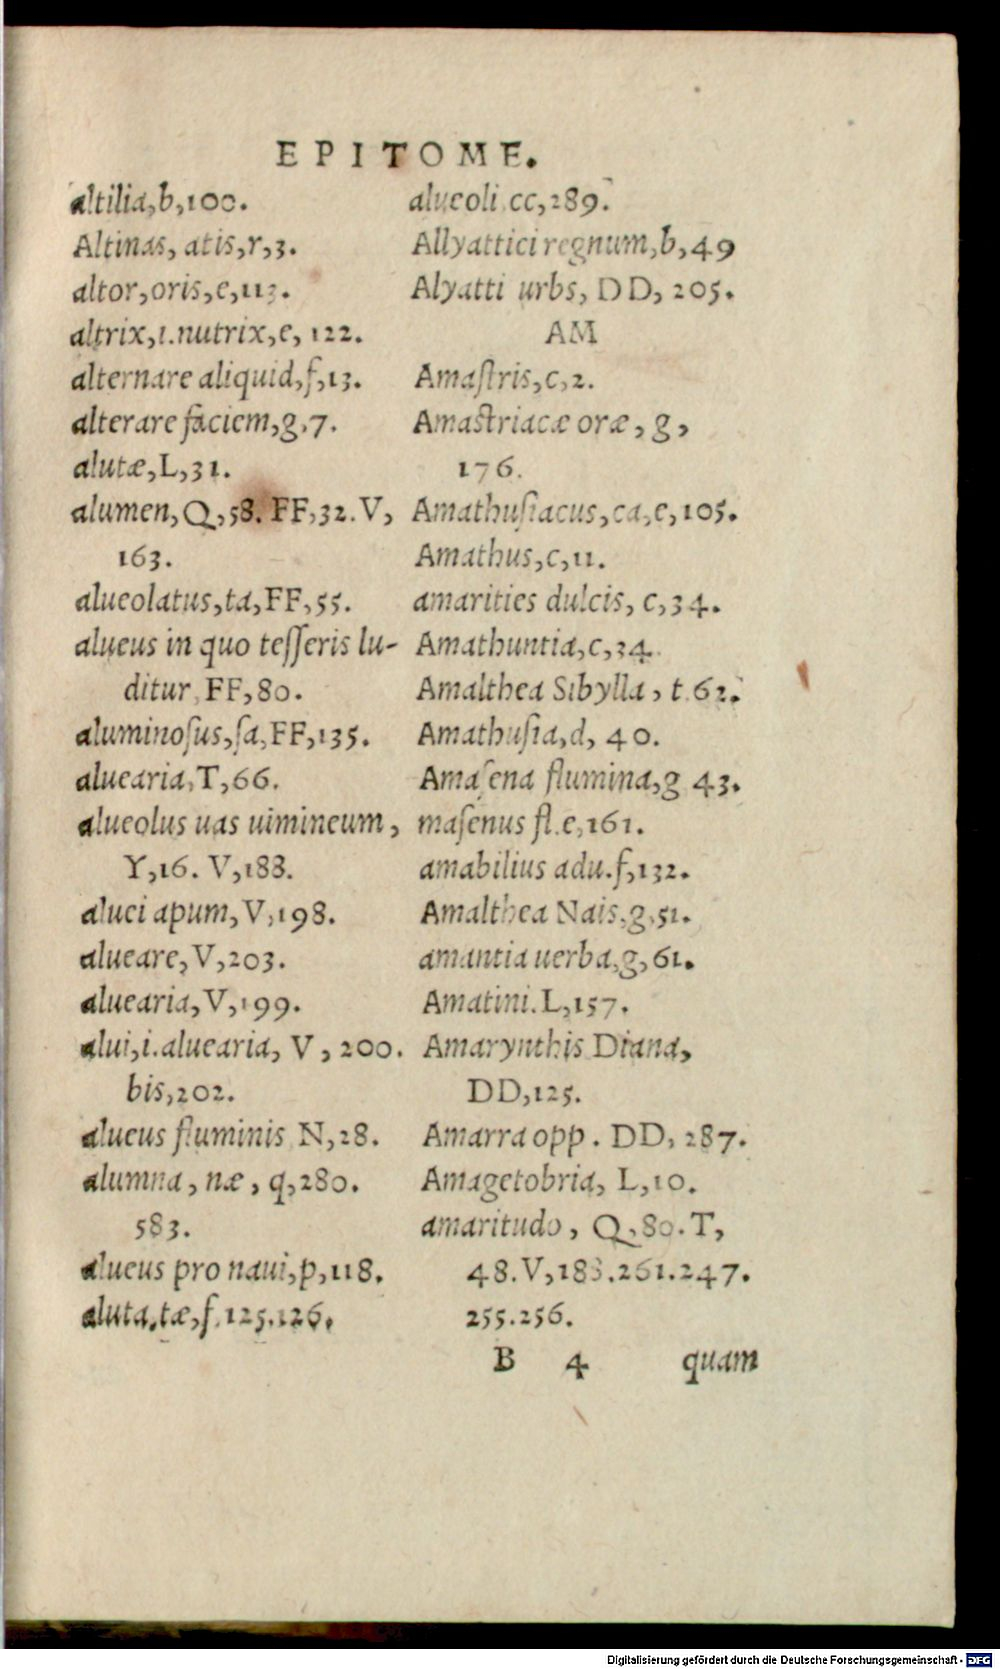 EPITOME.
altilia,b,100.
Altinas, atis,r,3.
altor,oris,e,113.
altrix,i.nutrix,e, 122.
alternare aliquid,f,13.
alterare faciem,g,7.
alutæ,L,31.
alumen,Q,58. FF,32.V,
163.
alueolatus,ta,FF,55.
alueus in quo teſſeris lu-
ditur FF,80.
aluminoſus,ſa,FF,135.
aluearia,T,66.
alueolus uas uimineum,
Y,16. V,188.
aluei apum,V,198.
alueare,V,203.
aluearia,V,199.
alui,i.aluearia, V, 200.
bis,202.
alueus fluminis N,28.
alumna, næ, q,280.
583.
alueus pro naui,p,118.
aluta,tæ,f.125.126.
alueoli cc,289.
Allyattici regnum,b,49
Alyatti urbs, DD, 205.
AM
Amaſtris,c,2.
Amaſtriacæ oræ, g,
176.
Amathuſiacus,ca,e,105.
Amathus,c,11.
amarities dulcis, c,34.
Amathuntia,c,34.
Amalthea Sibylla, t.62.
Amathuſia,d, 40.
Amaſena flumina,g 43.
maſenus fl.e,161.
amabilius adu.f,132.
Amalthea Nais,g,51.
amantia uerba,g,61.
Amatini.L,157.
Amarynthis Diana,
DD,125.
Amarra opp. DD, 287.
Amagetobria, L,10.
amaritudo, Q,80.T,
48.V,183.261.247.
255.256.
B 4 quam
Digitalisierung gefördert durch die Deutsche Forschungsgemeinschaft - DFG